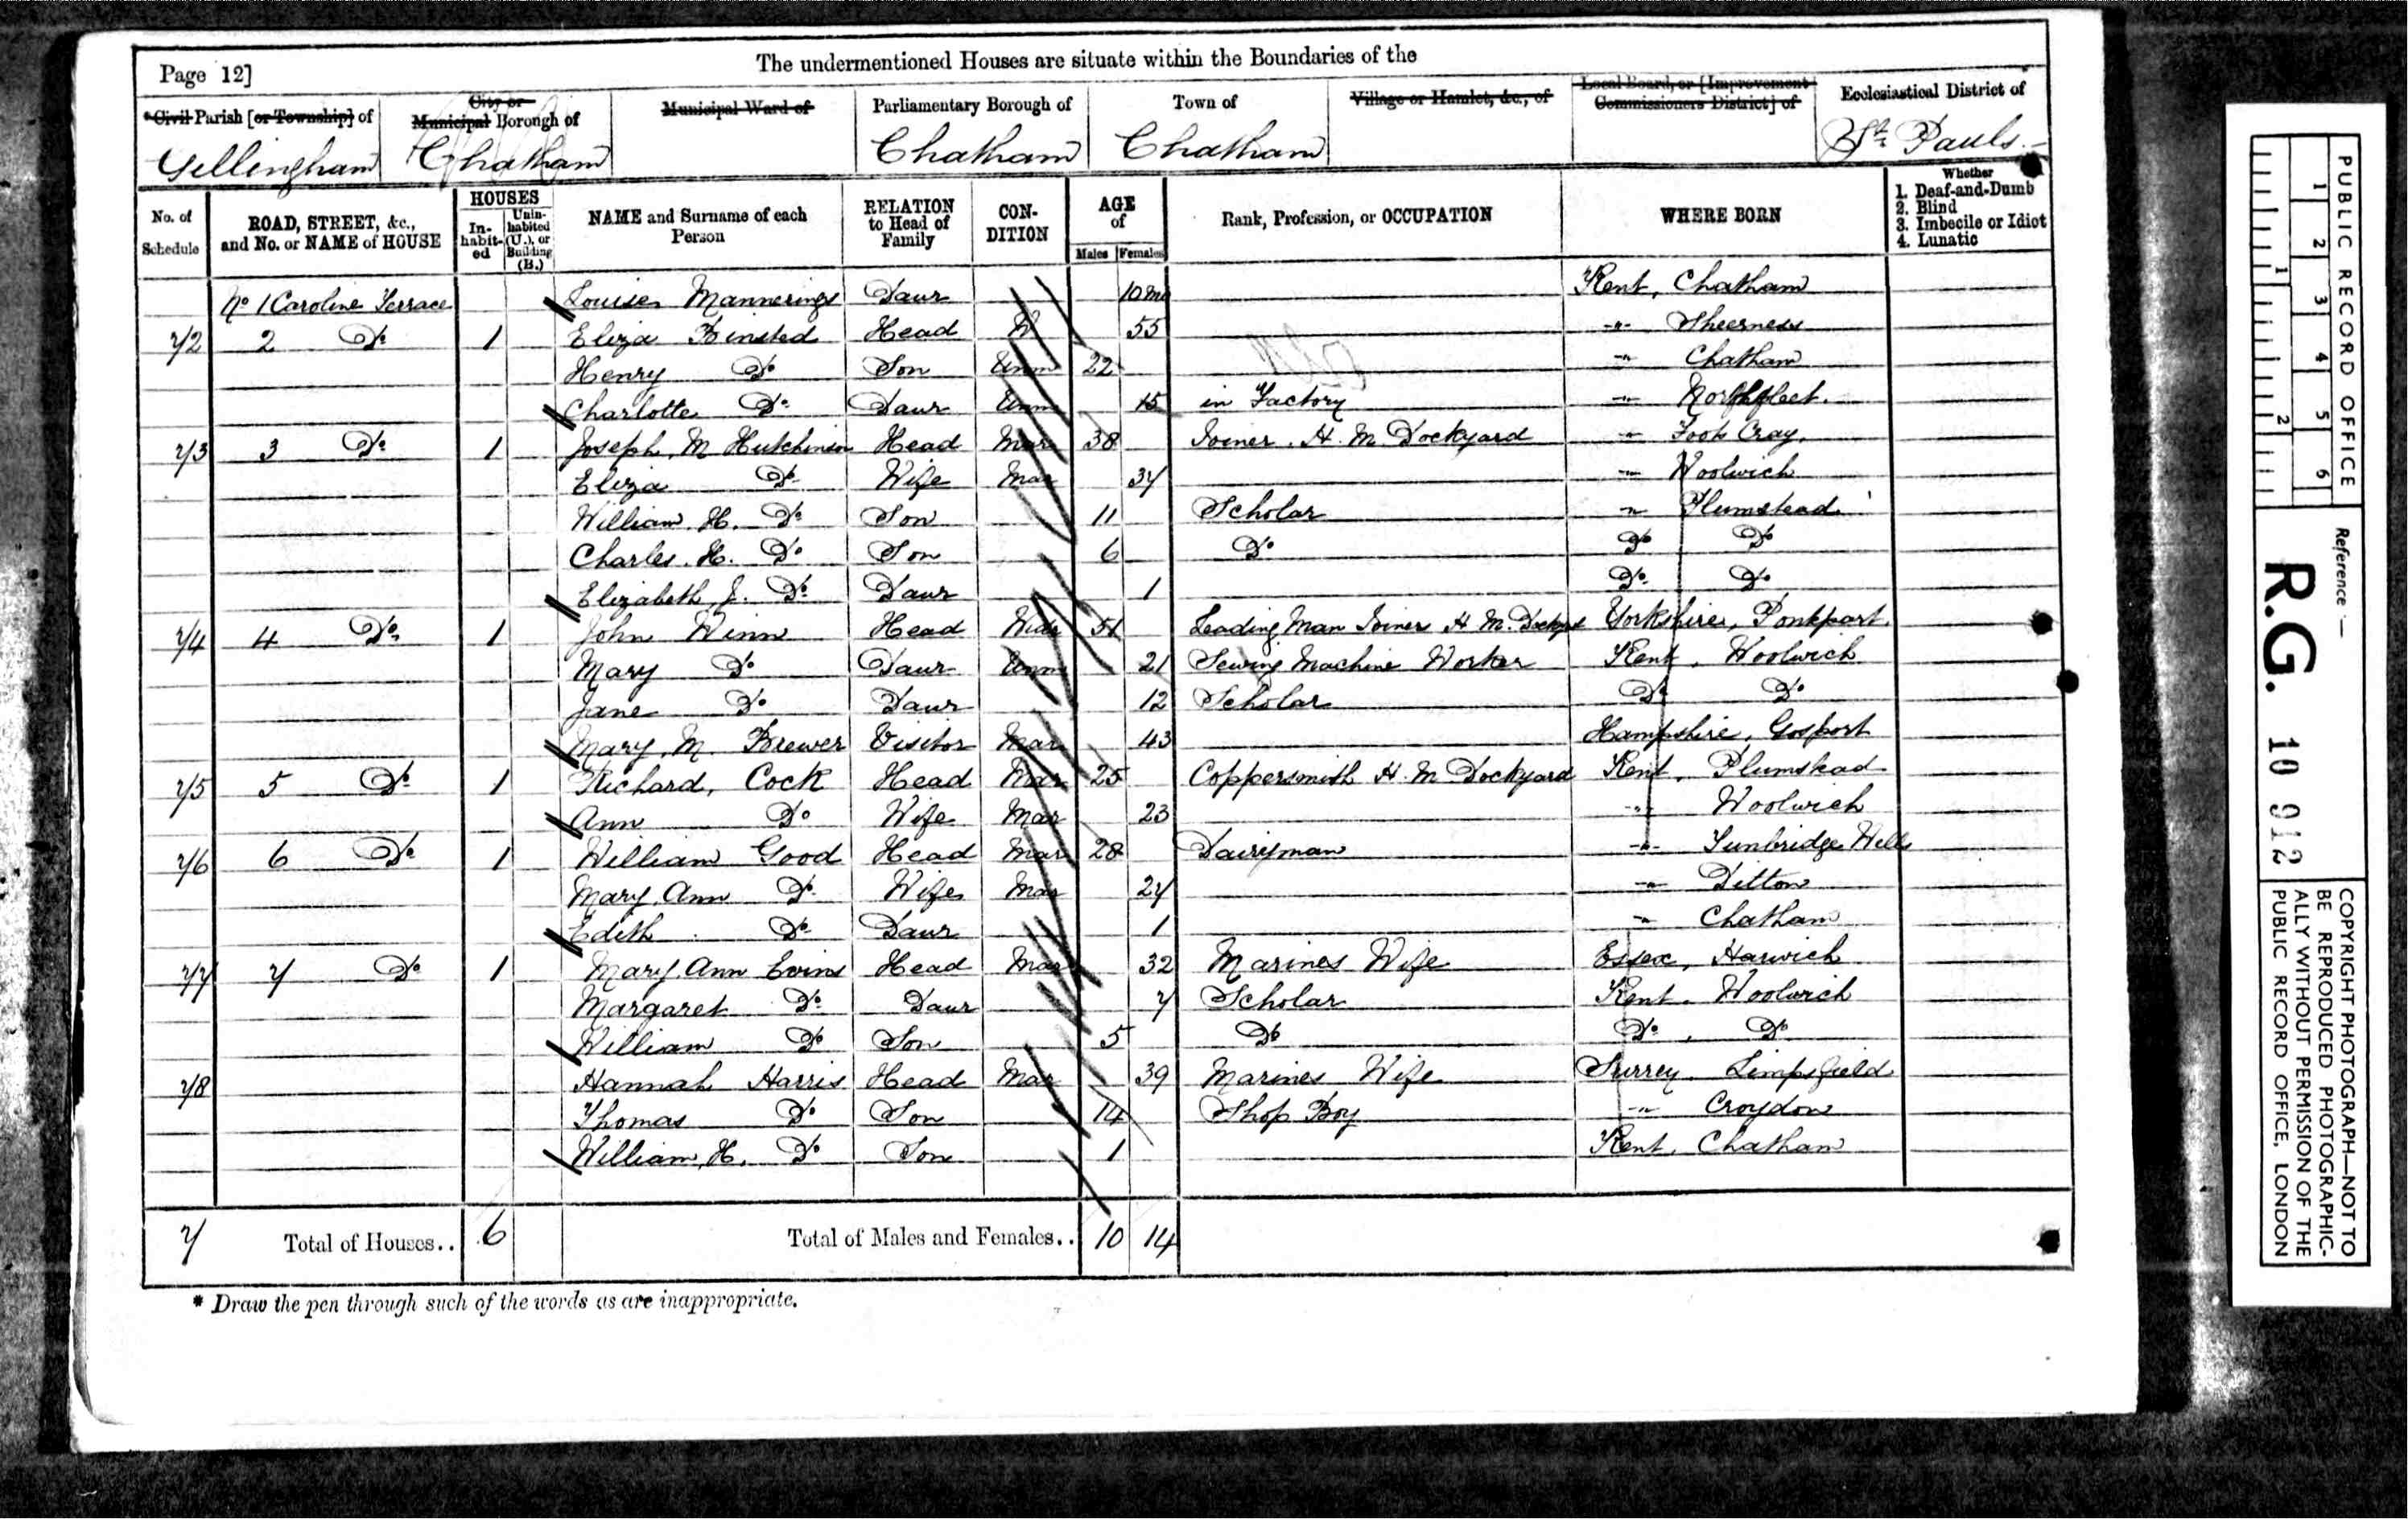 Page 12]
The undermentioned Houses are situate within the Boundaries of the
*Civil Parish [or Township] of
City or Municipal Borough of
Municipal Ward of
Parliamentary Borough of
Town of
Village or Hamlet, &c., of
Local Board, or [Improvement Commissioners District] of
Ecclesiastical District of
Gillingham Chatham Chatham Chatham St. Pauls.
No. of Schedule
ROAD, STREET, &c., and No. or NAME of HOUSE
HOUSES
In-habit-ed
Unin-habited (U.), or Building (B.)
NAME and Surname of each Person
RELATION to Head of Family
CON-DITION
AGE of
Males Females
Rank, Profession, or OCCUPATION
WHERE BORN
Whether
1. Deaf-and-Dumb
2. Blind
3. Imbecile or Idiot
4. Lunatic
No 1 Caroline Terrace Louisa Mannerings Daur 10 mo Kent, Chatham
72 2 Do 1 Eliza Binsted Head W 55 -"- Sheerness
Henry Do Son Unm 22 -"- Chatham
Charlotte Do Daur Unm 15 in Factory -"- Northfleet.
73 3 Do 1 Joseph. M Hutchinson Head Mar 38 Joiner. H. M Dockyard -"- Foots Cray.
Eliza Do Wife Mar 37 -"- Woolwich
William. H. Do Son 11 Scholar " Plumstead
Charles. H. Do Son 6 Do Do Do
Elizabeth, J. Do Daur 1 Do Do
74 4 Do 1 John Winn Head Widr 51 Leading Man Joiner H M. Dockyd Yorkshire,
Mary Do Daur Unm 21 Sewing Machine Worker Kent, Woolwich
Jane Do Daur 12 Scholar Do Do
Mary. M. Brewer Visitor Mar 43 Hampshire, Gosport
75 5 Do 1 Richard, Cock Head Mar 25 Coppersmith H. M Dockyard Kent, Plumstead
Ann Do Wife Mar 23 -"- Woolwich
76 6 Do 1 William Good Head Mar 28 Dairyman -"- Tunbridge Wells
Mary Ann Do Wife Mar 27 -"- Ditton
Edith Do Daur 1 -"- Chatham
77 7 Do 1 Mary Ann Evins Head Mar 32 Marines Wife Essex, Harwich
Margaret Do Daur 7 Scholar Kent. Woolwich
William Do Son 5 Do Do, Do
78 Hannah Harris Head Mar 39 Marines Wife Surrey Limpsfield
Thomas Do Son 14 Shop Boy -"- Croydon
William, H. Do Son 1 Kent, Chatham
7 Total of Houses.. 6 Total of Males and Females.. 10 14
* Draw the pen through such of the words as are inappropriate.
PUBLIC RECORD OFFICE
1 2 3 4 5 6
1 2
Reference :—
R.G. 10 912
COPYRIGHT PHOTOGRAPH—NOT TO
BE REPRODUCED PHOTOGRAPHIC-
ALLY WITHOUT PERMISSION OF THE
PUBLIC RECORD OFFICE, LONDON